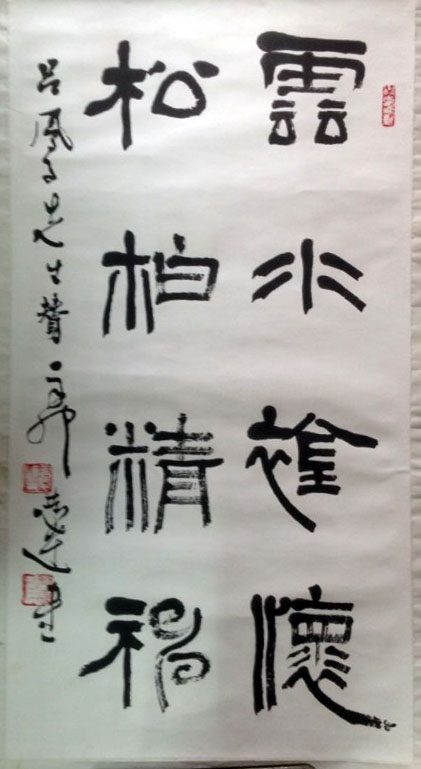 雲水襟懷
松柏精神
呂鳳子先生贊